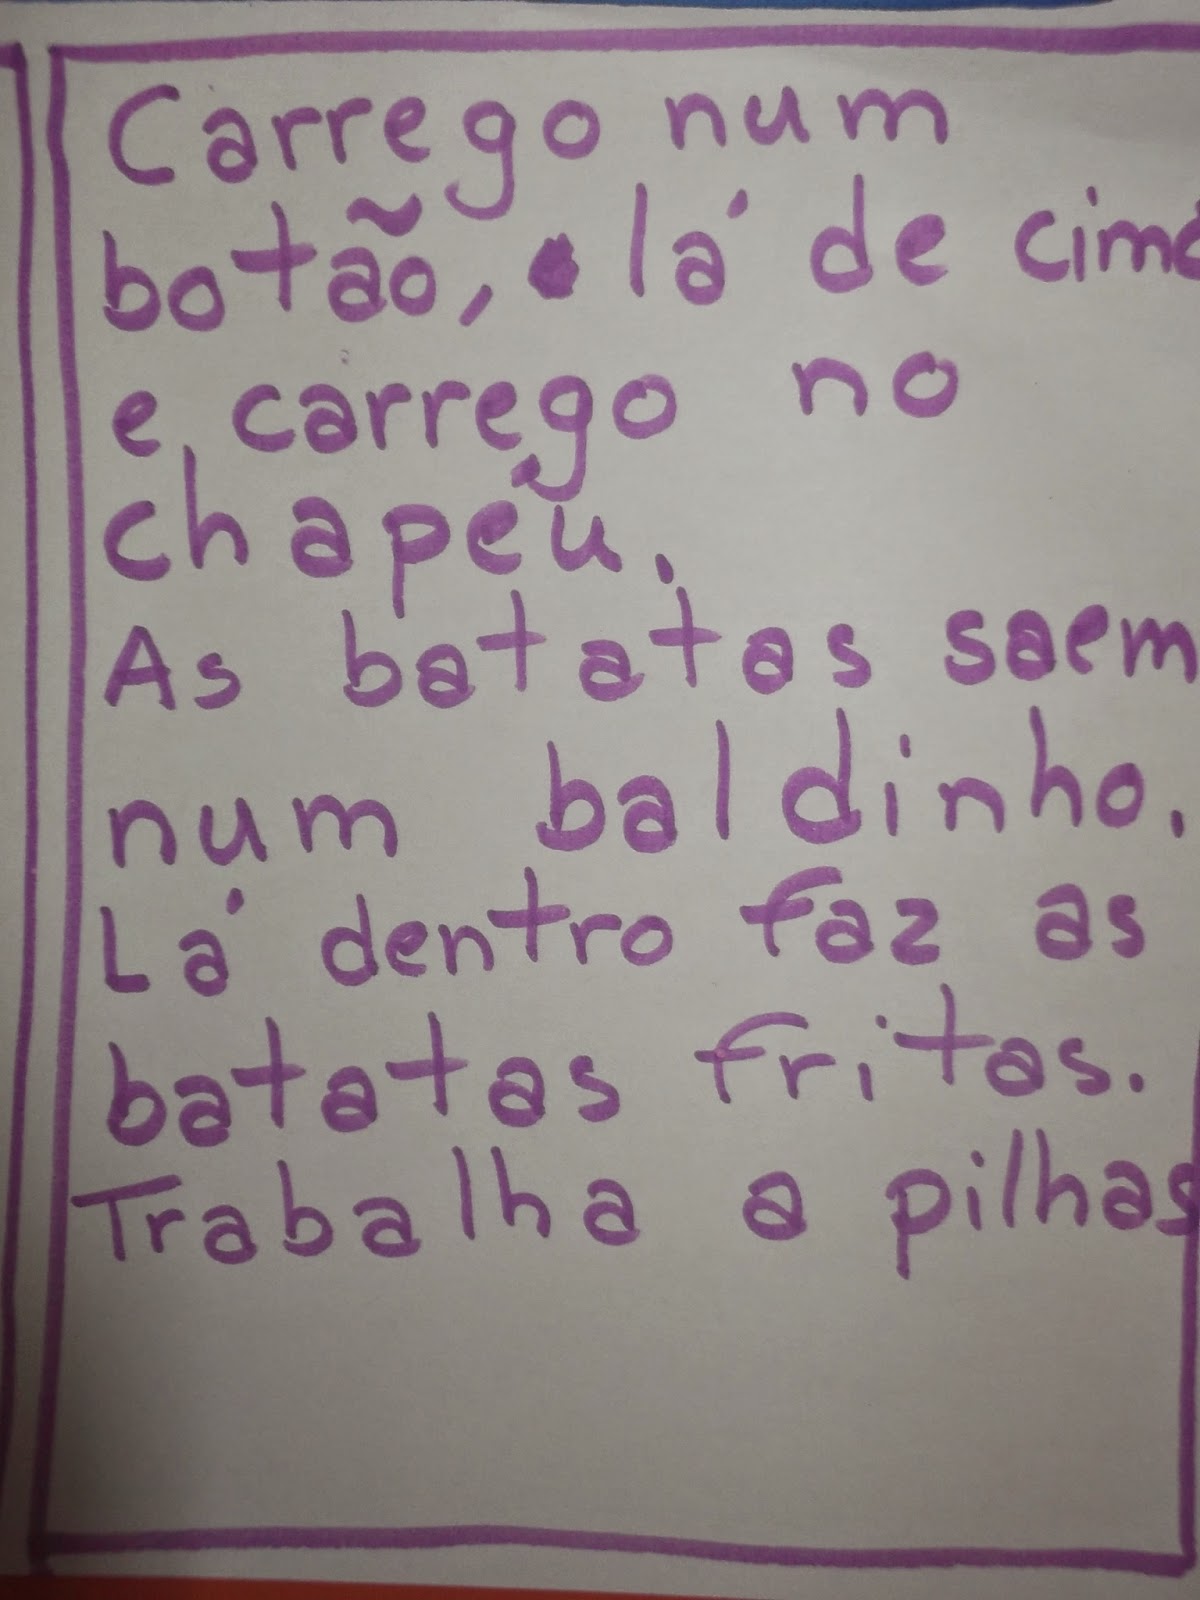 Carrego num
botão, lá de cima
e, carrego no
chapéu.
As batatas saem
num baldinho.
Lá dentro faz as
batatas fritas.
Trabalha a pilhas